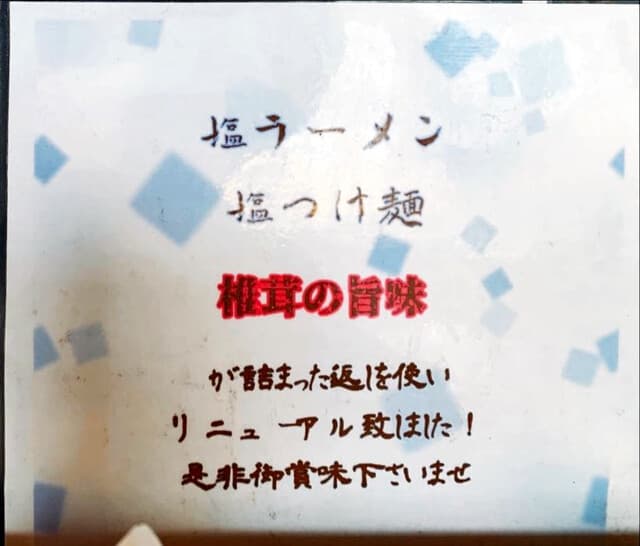 塩ラーメン
塩つけ麺
椎茸の旨味
が詰まった返しを使い
リニューアル致しました!
是非御賞味下さいませ